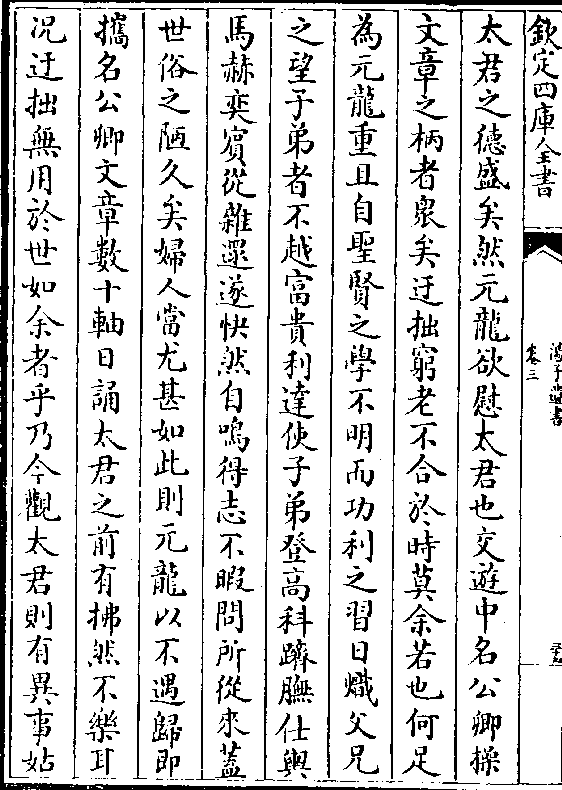 欽定四庫全書
卷三
太君之德盛矣然元龍欲慰太君也交遊中名公卿操
文章之柄者衆矣迂拙窮老不合於時莫余若也何足
為元龍重且自聖賢之學不明而功利之習日熾父兄
之望子弟者不越富貴利達使子弟登高科躋膴仕輿
馬赫奕賓從雜遝遂快然自鳴得志不暇問所從來蓋
世俗之陋久矣婦人當尤甚如此則元龍以不遇歸即
攜名公卿文章數十軸日誦太君之前有拂然不樂耳
况迂拙無用於世如余者乎乃今觀太君則有異事姑